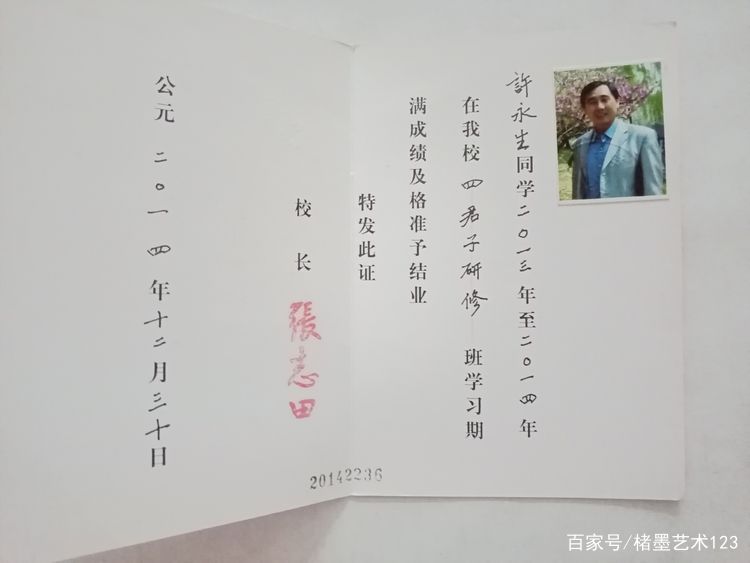 許永生同学二〇一三年至二〇一四年
在我校四君子研修班学习期
满成绩及格准予结业
特发此证
校长 張志田
公元二〇一四年十二月三十日
20142236
百家号/楮墨艺术123